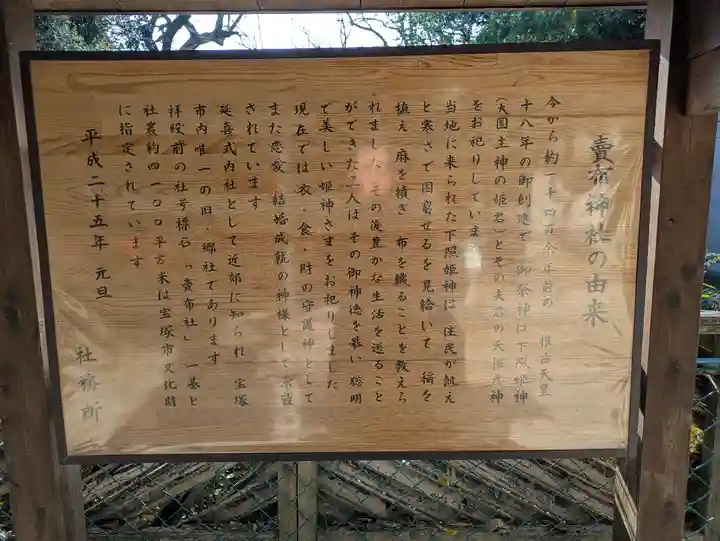 賣布神社の由来
今から約一千四百余年前の 推古天皇
十八年の御創建で 御祭神は下照姫神
(大国主神の姫君)とその夫君の天稚彦神
をお祀りしています
当地に来られた下照姫神は 住民が飢え
と寒さで困窮せるを見給いて 稲を
植え 麻を績ぎ 布を織ることを教えら
れました その後豊かな生活を送ること
ができた里人は その御神徳を慕い 聡明
で美しい姫神さまをお祀りしました
現在では衣・食・財の守護神として
また恋愛 結婚成就の神様として崇敬
されています
延喜式内社として近郊に知られ 宝塚
市内唯一の旧・郷社であります
拝殿前の社号標石「賣布社」 一基と
社叢約四一〇〇平方米は宝塚市文化財
に指定されています
平成二十五年 元旦
社務所